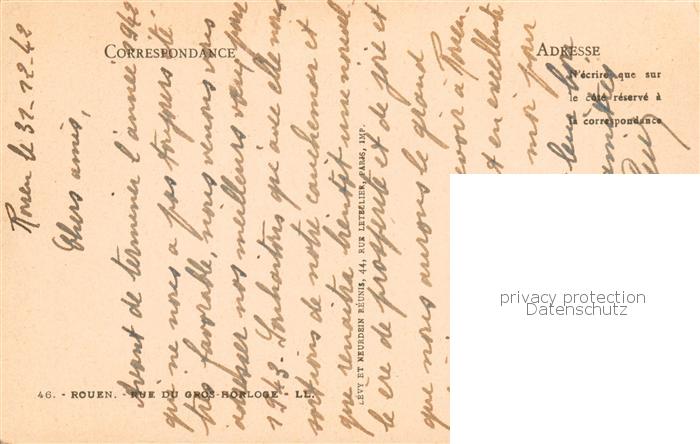 CORRESPONDANCE
ADRESSE
N'écrire que sur
le côté réservé à
la correspondance
Rouen le 31-12-42
Chers amis,
Avant de terminer l'année 1942
qui ne nous a pas toujours été
très favorable, nous venons vous
adresser nos meilleurs vœux pour
1943. Souhaitons qu'avec elle nous
sortirons de notre cauchemar et
que renaîtra bientôt une nouvel
le ère de prospérité et de joie et
que nous aurons le grand
voir à Rouen
t en excellente
moi pour
leur
amitiés
LÉVY ET NEURDEIN RÉUNIS, 44, RUE LETELLIER, PARIS, IMP.
46. - ROUEN. - RUE DU GROS-HORLOGE - LL.
privacy protection
Datenschutz